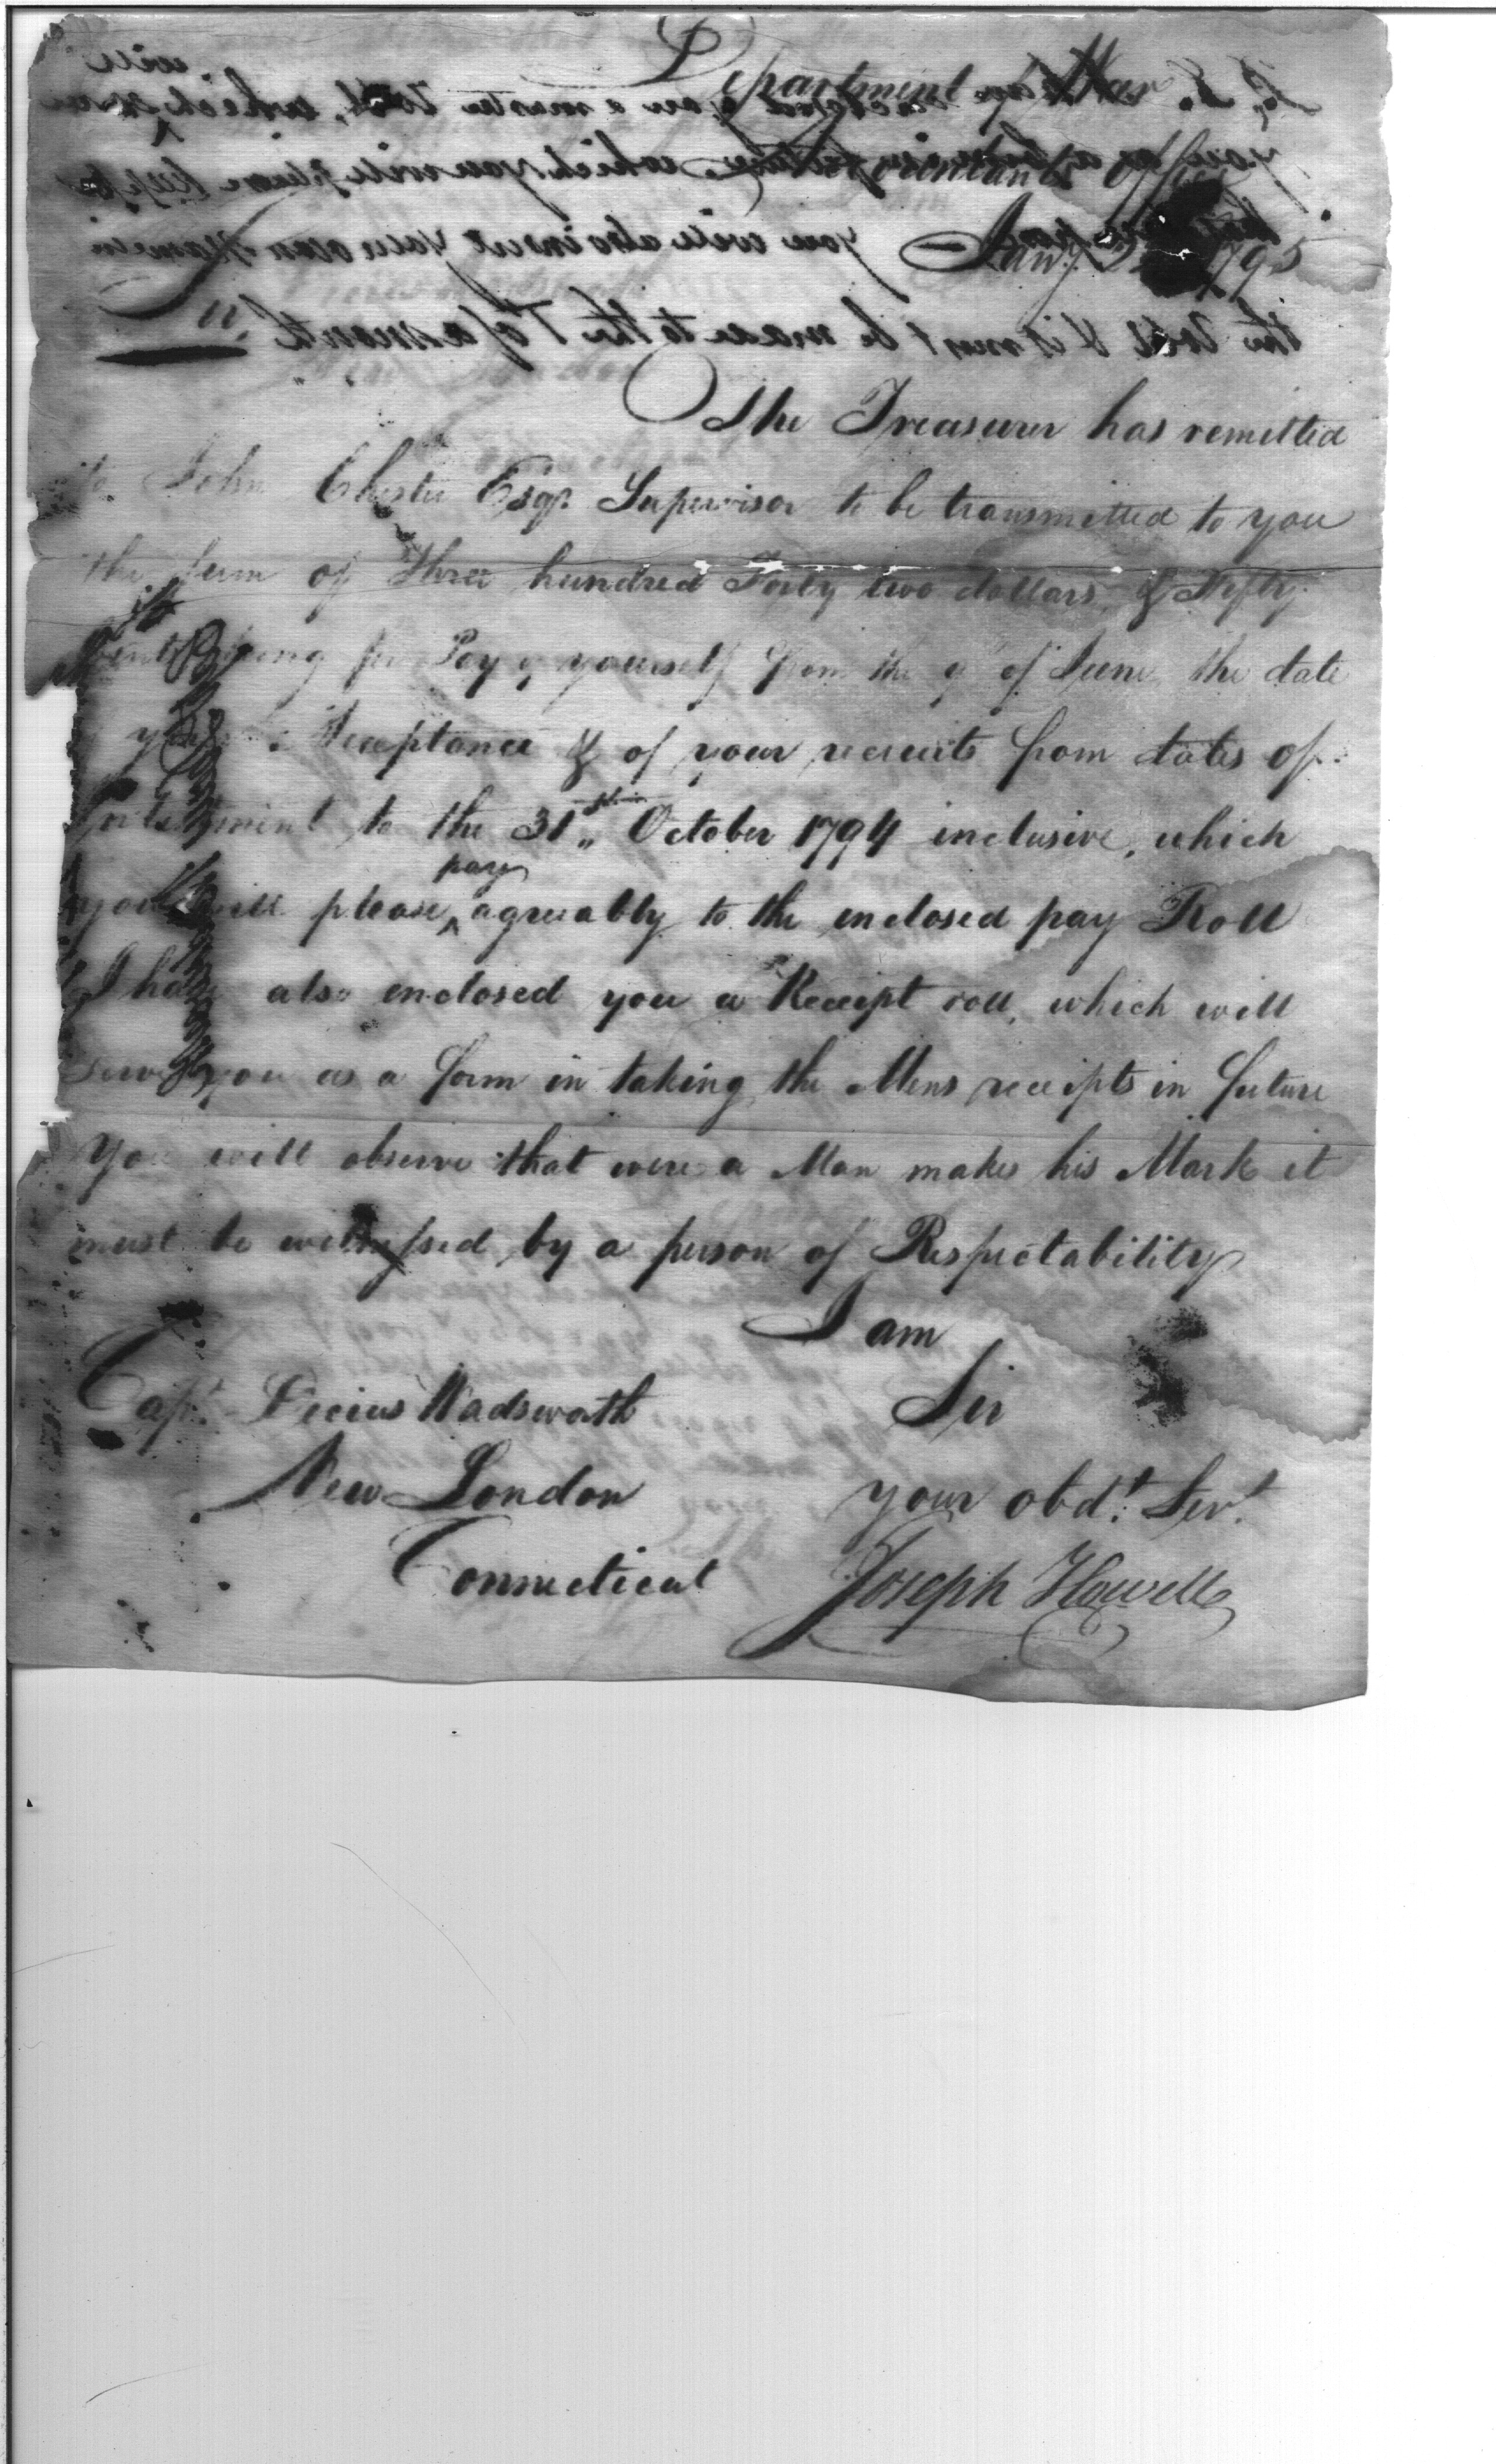 Department of War
Accountants Office
Jany. 2 1795
The Treasurer has remitted
to John Chester Esqr. Supervisor to be transmitted to you
the sum of Three hundred Forty two dollars, & Fifty
Cents being for Pay of yourself from the 9th of June the date
of your Acceptance & of your recruits from dates of
Inlistment to the 31st October 1794 inclusive, which
pay
you will please ^ agreeably to the enclosed pay Roll
I have also enclosed you a Receipt roll, which will
serve you as a form in taking the Mens receipts in future
You will observe that were a Man makes his Mark it
must be witnessed by a person of Respectability
I am
Sir
Capt. Decius Wadsworth
New London
Connecticut
your obdt. Servt.
Joseph Howell
will
P.S. enclosed you a muster Roll, which ^ serve
you as a form in future, which you will please keep
you will also insert your own Name in
the Roll & it must be made to the 1st of a month